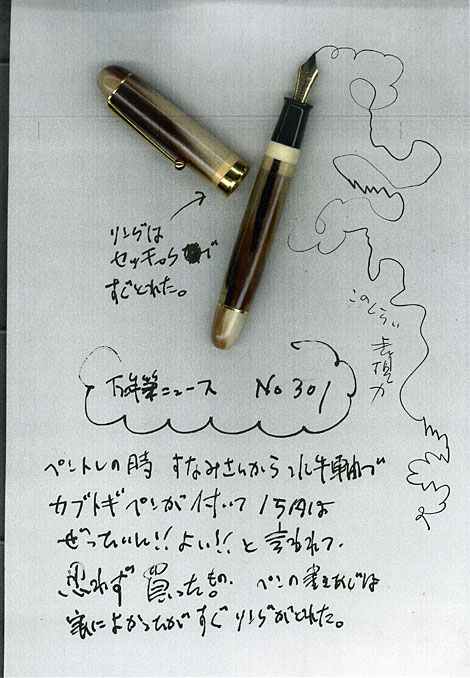 リングは
すぐとれた。
このくらい
表現力
万年筆ニュース No 301
ペントレの時 すなみさんから 水牛軸で
カブトギペンが付いて 1万円は
ぜったいに!! よい!! と言われて、
思わず買ったもの. ペンの書きあじは
実によかったがすぐリングがとれた。